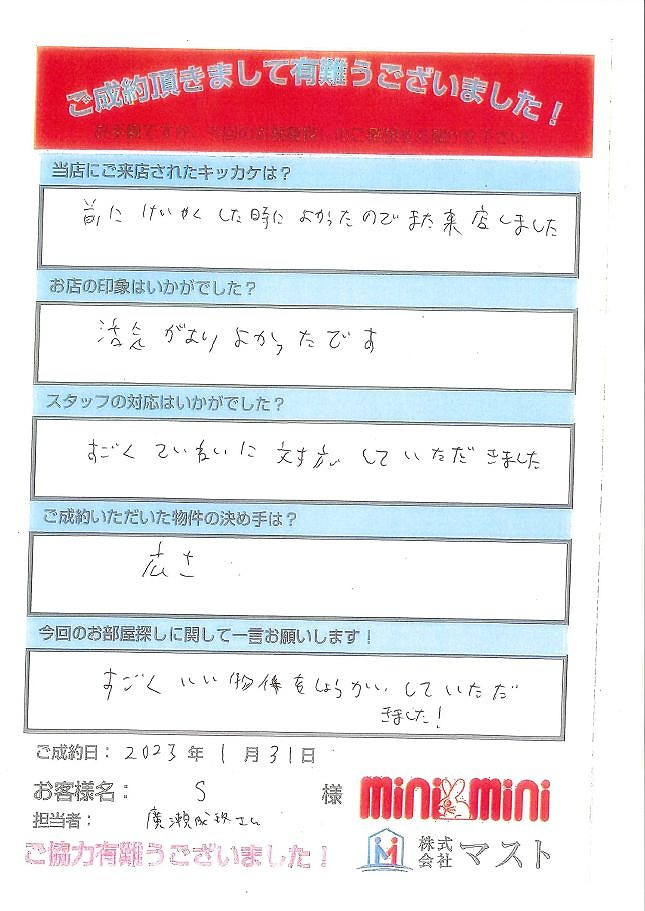 ご成約頂きまして有難うございました！
当店にご来店されたキッカケは？
前に けいやく した時に よかったので また来店しました
お店の印象はいかがでした？
活気があり よかったです
スタッフの対応はいかがでした？
すごく ていねいに 対応 して いただきました
ご成約いただいた物件の決め手は？
広さ
今回のお部屋探しに関して一言お願いします！
すごく いい 物件をしょうかい していただ
きました！
ご成約日： 2023 年 1 月 31 日
お客様名： S 様
担当者： 廣瀬 さん
ご協力有難うございました！
mini mini
株式会社 マスト